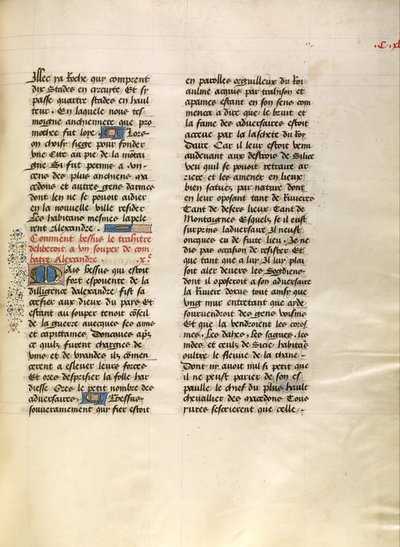 .C. xl
Illec ya Roche quy comprent
dix stades en circuyte Et sy
passe quattre stades en haul
teur. En laquelle nous tes
moigne anchiennete que pro
mothee fut loye. Lors
on choisy siege pour fonder
une Cite au pie de la monta
igne Si fut permis a
des plus anchiens ma
cedons et autres gens darmes
dont len ne se povoit aidier
en la nouvelle ville resider
Les habitans mesmes lapele
rent Alexandre.
Comment bessus le trahitre
deliberoit a un souper de com
batre Alexandre. x.e
Mais bessus qui estoit
fort espouente de la
dilligence dalexandre fist sa
crefier aux dieux du pays Et
estant au souper tenoit conseil
de la guerre avecques ses amis
et capittaines Doncques apres
ce quilz furent chargies de
vins et de viandes ilz comen
cerent a eslever leurs forces
Et ores desprisier la folle har
diesse Ores le petit nombre des
adversaires. Bessus
souverainement qui fier estoit
en parolles orguilleux du Roy
aulme acquis par trahison et
apaines estant en son sens com
menca a dire que le bruit et
la fame des adversaires estoit
acreue par la laschete du Roy
Daire Car il leur estoit venu
audevant aux destrois de Silice
veu quil se povoit retraire ar
riere et les amener en lieux
bien fatues, par nature dont
en leur oposant tant de Rivieres
Tant de desers lieux Tant de
Montaignes Esquelz se il eust
surprins ladversaire Il neust
oncques eu de fuite lieu, Je ne
die pas occasion de resister Et
que tant que a luy Il luy plai
soit aler devers les Sogdiens
dont il oposeroit a son adversaire
la Riviere doxus tout ainsy que
ung mur entretant que aide
sourvendroit des gens voisins
Et que la vendroient les coros
mes. Les dahes. Les sagues. les
indes et ceulx de Sicie habitans
oultre le fleuve de la thane
Dont ny avoit nul si petit que
il ne peust parier de son es
paulle le chief du plus hault
chevallier des macedons Tous
yvres sescrierent que celle